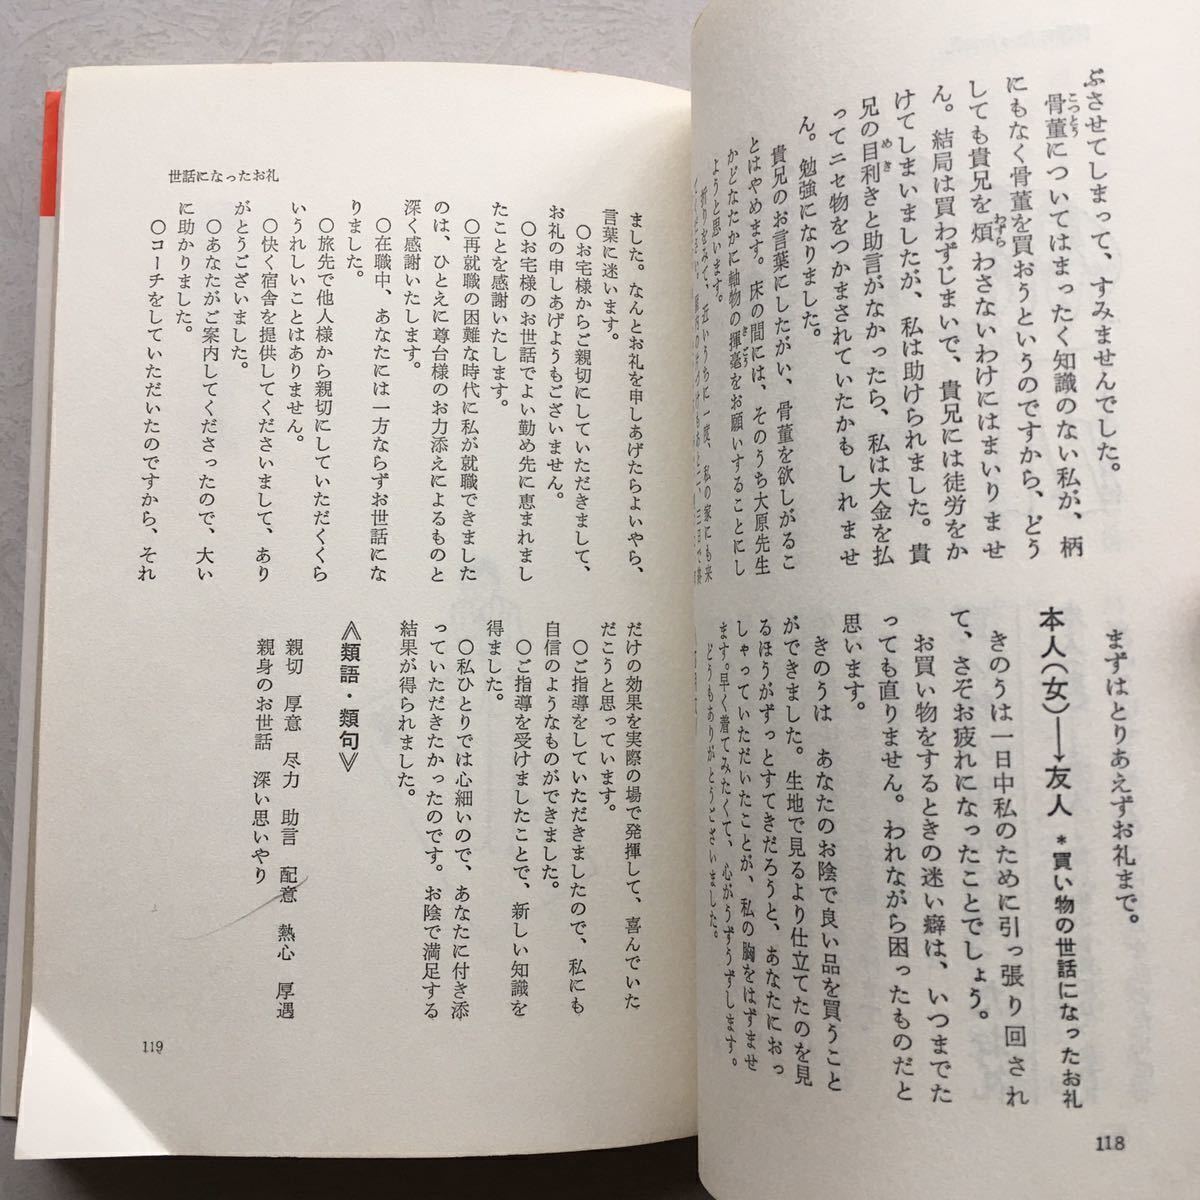 ぶさせてしまって、すみませんでした。
骨董についてはまったく知識のない私が、柄
こっとう
にもなく骨董を買おうというのですから、どう
しても貴兄を煩わさないわけにはまいりませ
わずら
ん。結局は買わずじまいで、貴兄には徒労をか
けてしまいましたが、私は助けられました。貴
兄の目利きと助言がなかったら、私は大金を払
めき
ってニセ物をつかまされていたかもしれませ
ん。勉強になりました。
貴兄のお言葉にしたがい、骨董を欲しがるこ
とはやめます。床の間には、そのうち大原先生
かどなたかに軸物の揮毫をお願いすることにし
きごう
ようと思います。
折りをみて、近いうちに一度、私の家にも来
まずはとりあえずお礼まで。
本人(女)―→友人 *買い物の世話になったお礼
きのうは一日中私のために引っ張り回され
て、さぞお疲れになったことでしょう。
お買い物をするときの迷い癖は、いつまでた
っても直りません。われながら困ったものだと
思います。
きのうは あなたのお陰で良い品を買うこと
ができました。生地で見るより仕立てたのを見
るほうがずっとすてきだろうと、あなたにおっ
しゃっていただいたことが、私の胸をはずませ
ます。早く着てみたくて、心がうずうずします。
どうもありがとうございました。
118
世話になったお礼
ました。なんとお礼を申しあげたらよいやら、
言葉に迷います。
○お宅様からご親切にしていただきまして、
お礼の申しあげようもございません。
○お宅様のお世話でよい勤め先に恵まれまし
たことを感謝いたします。
○再就職の困難な時代に私が就職できました
のは、ひとえに尊台様のお力添えによるものと
深く感謝いたします。
○在職中、あなたには一方ならずお世話にな
りました。
○旅先で他人様から親切にしていただくくら
いうれしいことはありません。
○快く宿舎を提供してくださいまして、あり
がとうございました。
○あなたがご案内してくださったので、大い
に助かりました。
○コーチをしていただいたのですから、それ
だけの効果を実際の場で発揮して、喜んでいた
だこうと思っています。
○ご指導をしていただきましたので、私にも
自信のようなものができました。
○ご指導を受けましたことで、新しい知識を
得ました。
○私ひとりでは心細いので、あなたに付き添
っていただきたかったのです。お陰で満足する
結果が得られました。
《類語・類句》
親切 厚意 尽力 助言 配意 熱心 厚遇
親身のお世話 深い思いやり
119